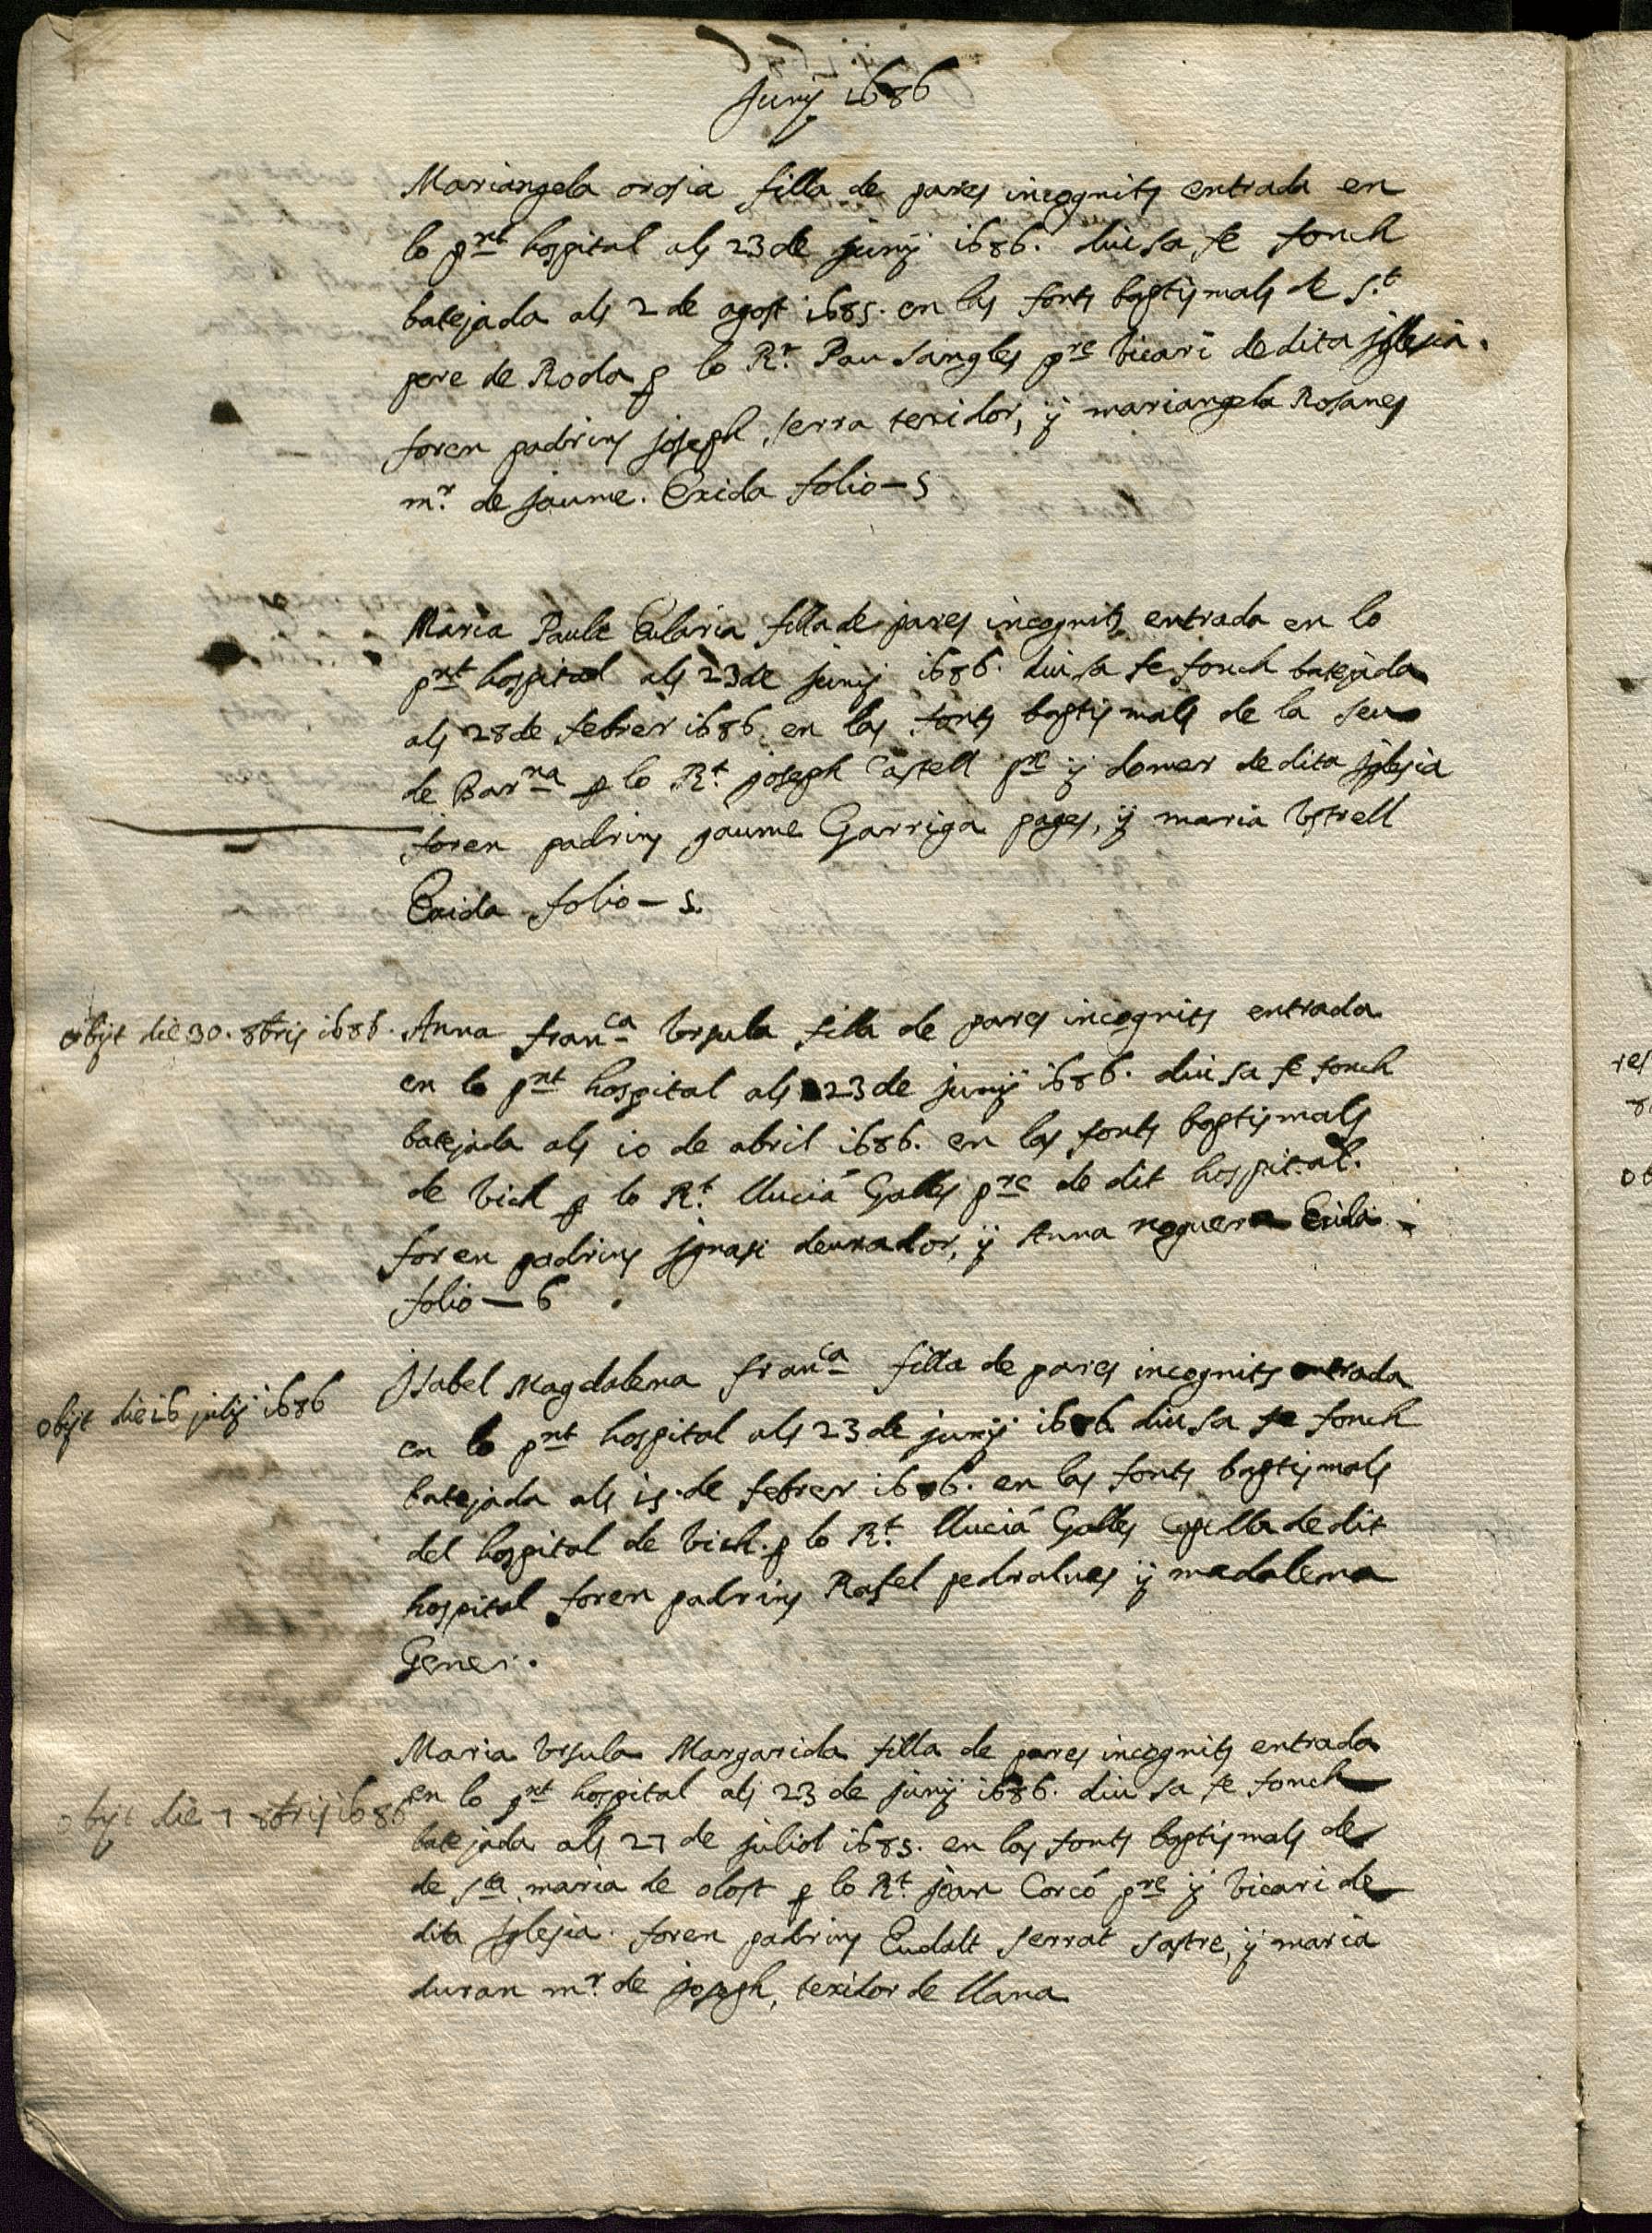 Juny 1686
Mariangela orosia filla de pares incognits entrada en
lo pnt hospital als 23 de juny 1686. diu sa fe fonch
batejada als 2 de agost 1685. en las fonts baptismals de St.
pere de Roda p lo Rt. Pau Sangles pre vicari de dita Iglesia.
foren padrins joseph serra texidor, y mariangela Rosanes
mr. de Jaume. Exida folio - 5
Maria Paula Eularia filla de pares incognits entrada en lo
pnt hospital als 23 de juny 1686. diu sa fe fonch batejada
als 28 de febrer 1686. en las fonts baptismals de la seu
de Barna p lo Rt. joseph Castell pre y domer de dita Iglesia
foren padrins jaume Garriga pages, y maria Ustrell
Exida folio - 5.
obijt die 30. 8bris 1686.
Anna franca Ursula filla de pares incognits entrada
en lo pnt hospital als 23 de juny 1686. diu sa fe fonch
batejada als 10 de abril 1686. en las fonts baptismals
de Vich p lo Rt. Llucià Galles pre de dit hospital.
foren padrins Ignasi deurador, y Anna noguera Exida
folio - 6
obijt die 16 julij 1686
Isabel Magdalena franca filla de pares incognits entrada
en lo pnt hospital als 23 de juny 1686 diu sa fe fonch
batejada als 15. de febrer 1686. en las fonts baptismals
del hospital de Vich. p lo Rt. Llucià Galles Capella de dit
hospital foren padrins Rafel pedralues y madalena
Gener.
obijt die 7 8bris 1686
Maria Ursula Margarida filla de pares incognits entrada
en lo pnt hospital als 23 de juny 1686. diu sa fe fonch
batejada als 27 de juliol 1685. en las fonts baptismals de
de Sta. maria de olost p lo Rt. joan Corcó pre y vicari de
dita Iglesia. foren padrins Eudalt serrat sastre, y maria
duran mr. de joseph, texidor de llana